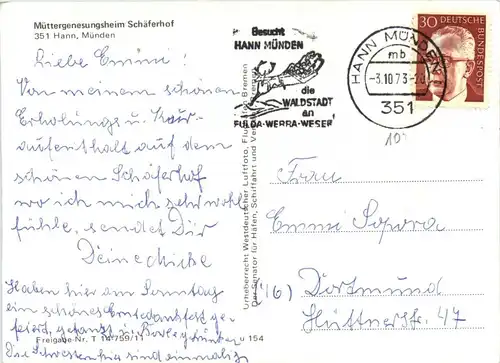 Müttergenesungsheim Schäferhof
351 Hann, Münden
Liebe Emmi!
Von meinem schönen
Erholungs u. Kur-
aufenthalt auf dem
schönen Schäferhof
wo ich mich sehr wohl
fühle, sendet Dir
Deine
Haben hier am Sonntag
ein schönes Erntedankfest ge-
feiert, getanzt in
Die Schwestern hier sind einmalig
Freigabe-Nr. T 14/759/11
u 154
Urheberrecht Westdeutscher Luftfoto, Bremen
Der Senator für Häfen, Schiffahrt und
Besucht
HANN MÜNDEN
die
WALDSTADT
an
FULDA-WERRA-WESER
HANN MÜNDEN
mb
-3.10.73-
351
30 DEUTSCHE
BUNDESPOST
10
Frau
Emmi Sopora
(46) Dortmund
Hüttnerstr. 47